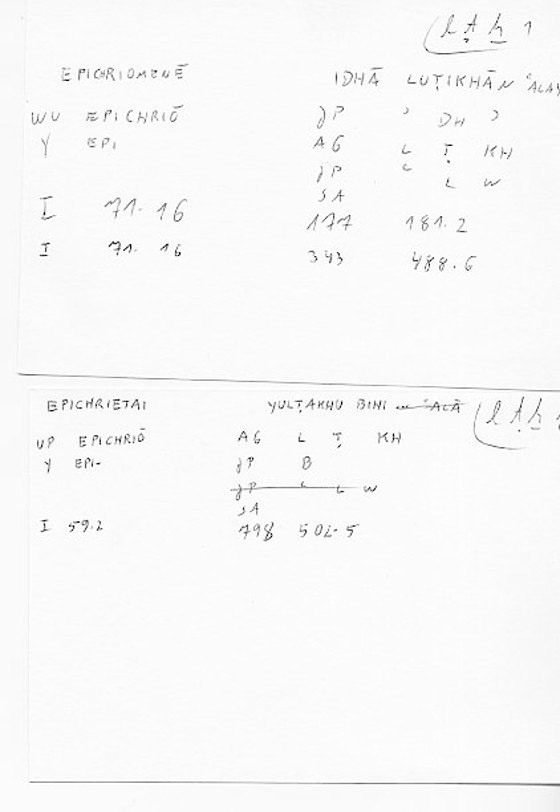 lṬḫ 1
EPICHRIOMENĒ IDHĀ LUṬIKHĀN ʿALAY
WU EPICHRIŌ JP ʾ DH ʾ
Y EPI AG L Ṭ KH
JP ʿ L W
SA
I 71. 16 177 181.2
I 71. 16 343 488.6
EPICHRIETAI YULṬAKHU BIHI ʿALĀ lṬḫ
UP EPICHRIŌ AG L Ṭ KH
Y EPI- JP B
JP ʿ L W
SA
I 59.2 798 502.5